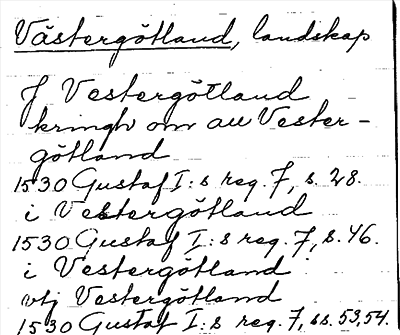 Västergötland, landskap
J Vestergötland
kringh om all Vester-
götland
1530 Gustaf I:s reg. 7, s. 28.
i Vestergötland
1530 Gustaf I:s reg. 7, s. 46.
i Vestergötland
vtj Vestergötland
1530 Gustaf I:s reg. 7, ss. 53, 54.